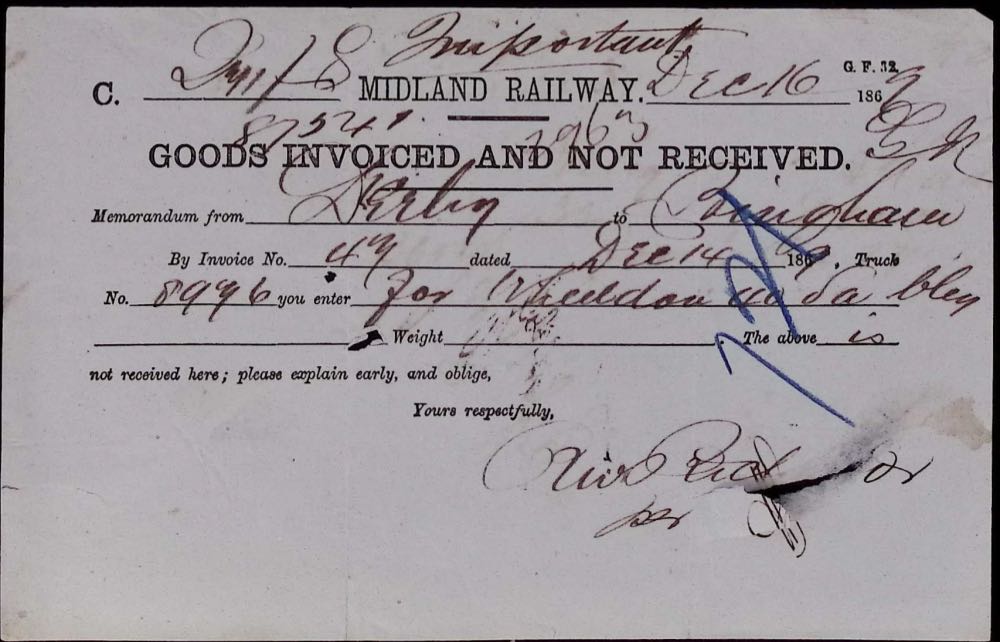 Important
G. F. 32.
C. MIDLAND RAILWAY. Dec 16 1869
87541.
GOODS INVOICED AND NOT RECEIVED.
Memorandum from Derby to Bingham
By Invoice No. 49 dated Dec 14 1869. Truck
No. 8996 you enter for Wheeldon
Weight The above is
not received here; please explain early, and oblige,
Yours respectfully,
per